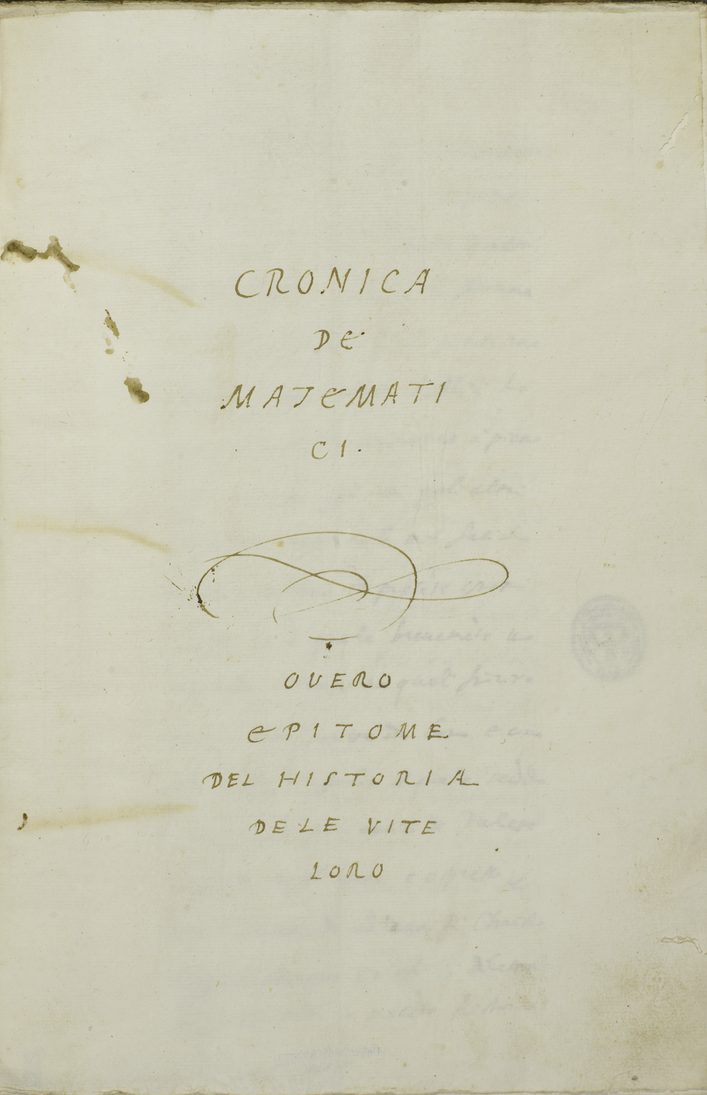 CRONICA
DE
MATEMATI
CI.
OVERO
EPITOME
DEL HISTORIA
DELE VITE
LORO